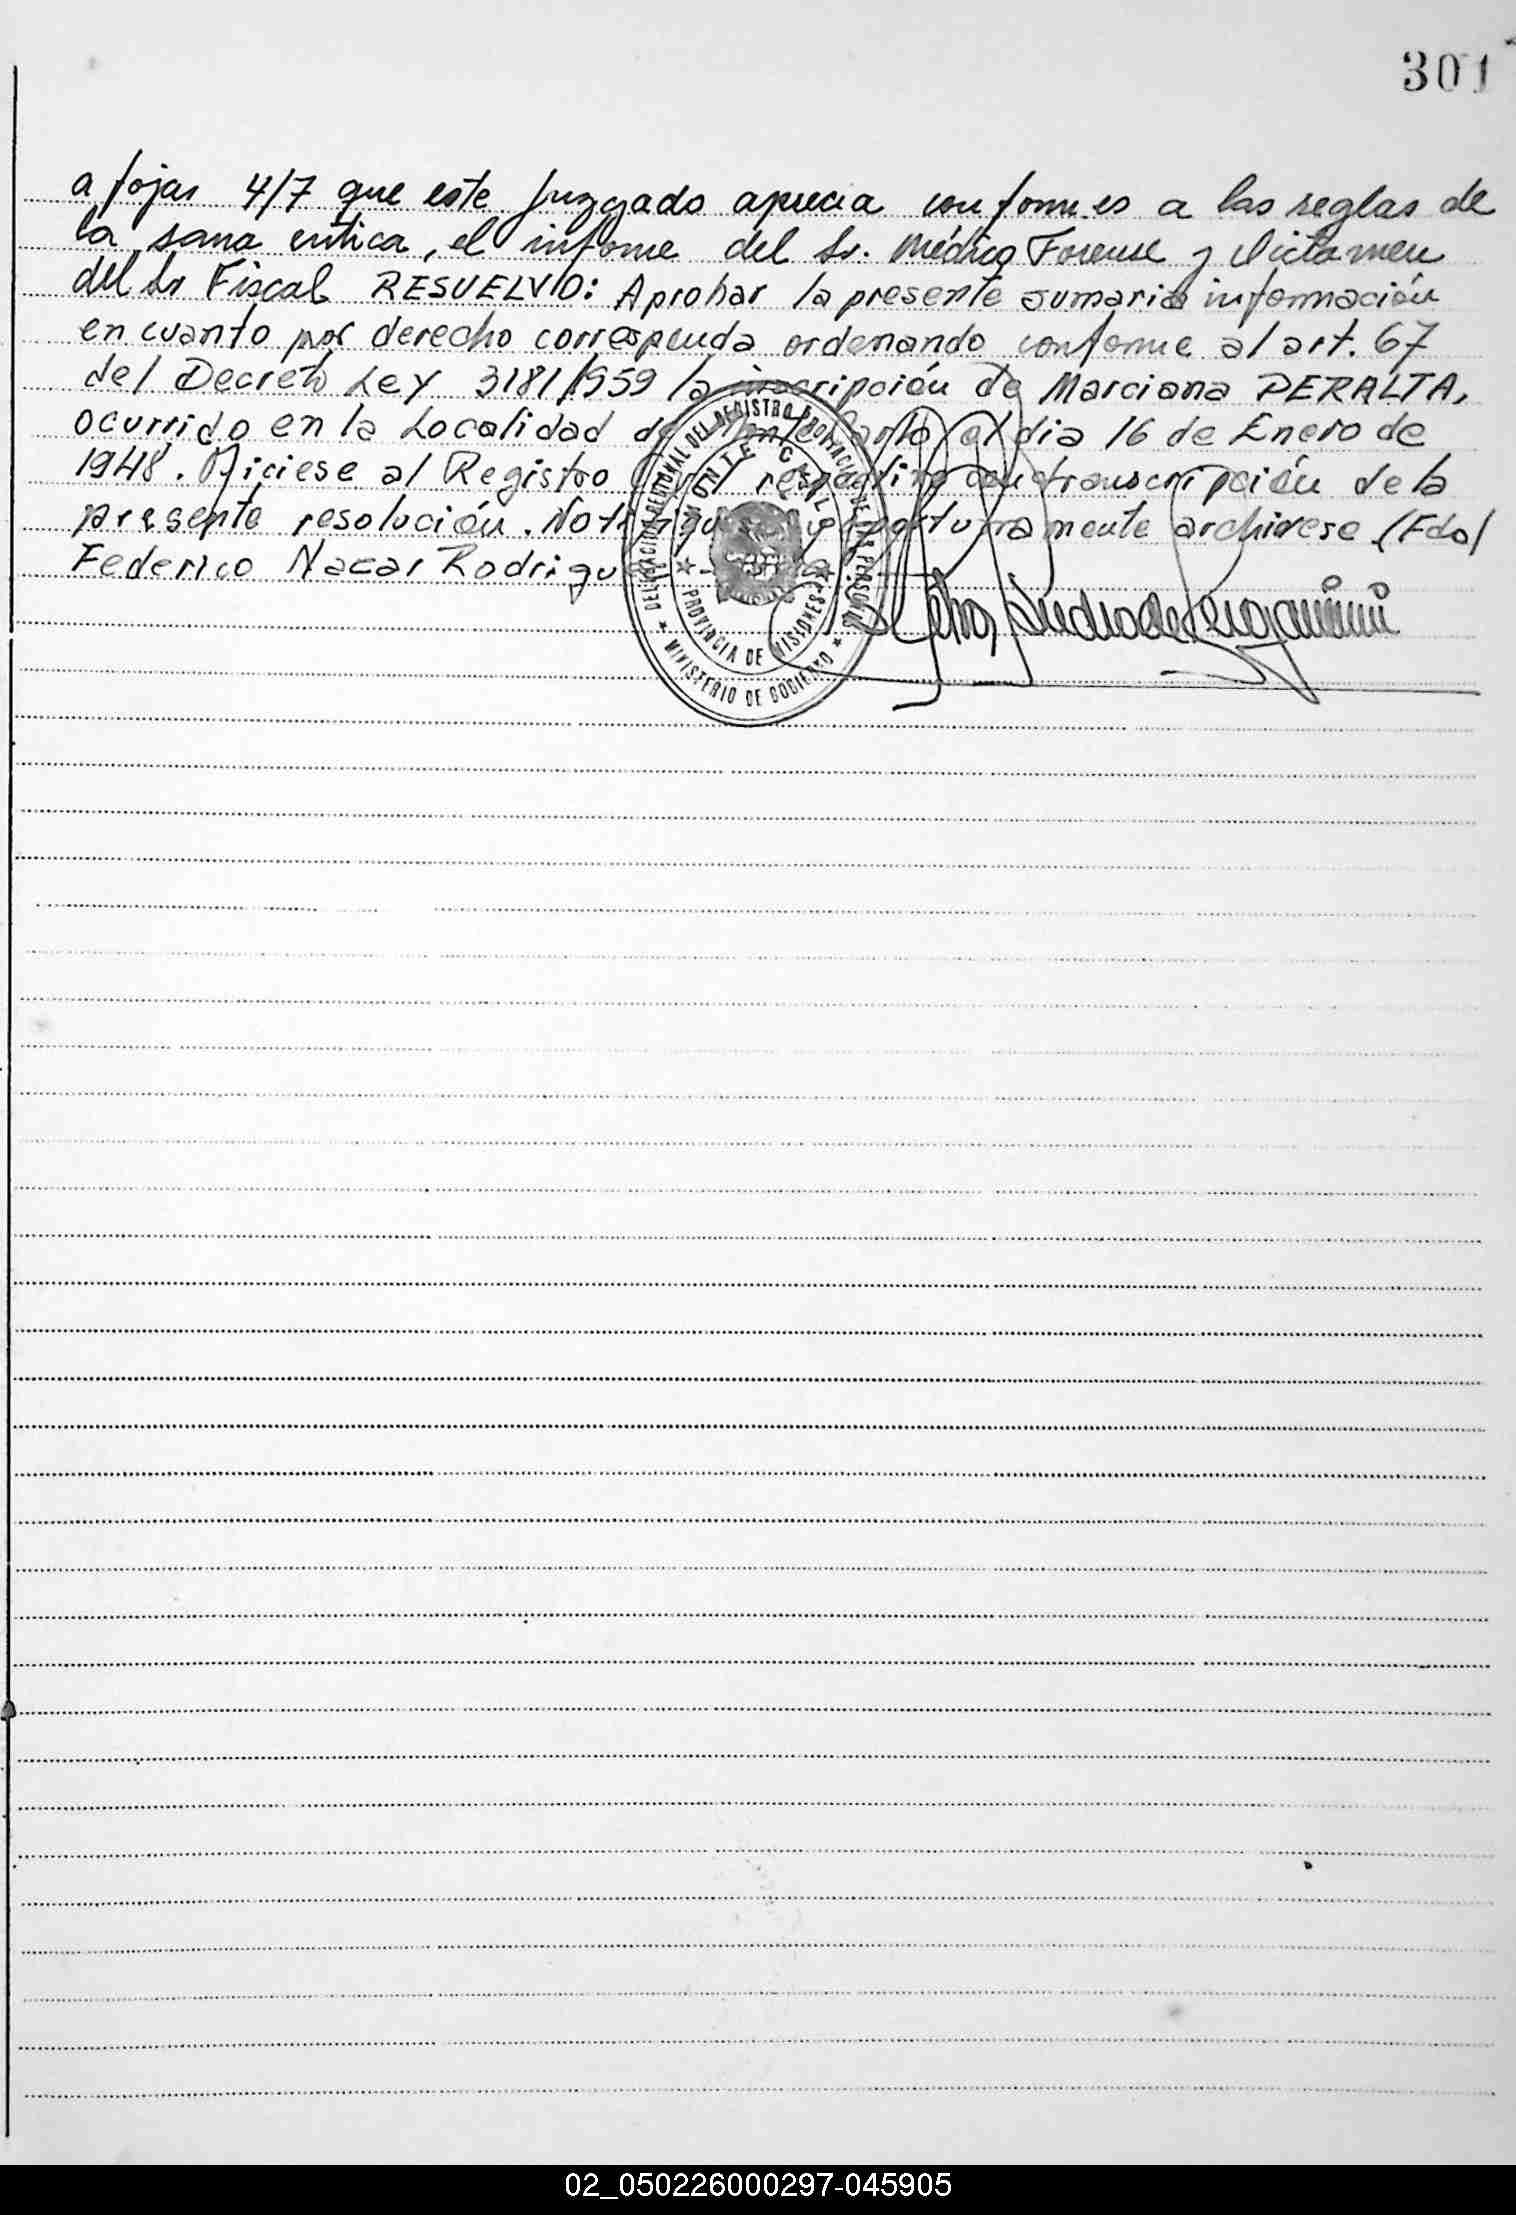 301
a fojas 4/7 que este Juzgado aprecia conformes a las reglas de
la sana critica, el informe del Sr. Médico Forense y Dictamen
del Sr Fiscal RESUELVO: Aprobar la presente sumaria información
en cuanto por derecho corresponda ordenando conforme al art. 67
del Decreto Ley 3181/1959 la inscripción de Marciana PERALTA,
ocurrido en la Localidad de Montecarlo el dia 16 de Enero de
1948. Oficiese al Registro Civil respectivo con transcripción de la
presente resolución. y oportunamente archivese (Fdo)
Federico Nacar
DELEGACION REGIONAL DEL REGISTRO PROVINCIAL DE LAS PERSONAS
MONTE CARLO
PROVINCIA DE MISIONES
MINISTERIO DE GOBIERNO
02_050226000297-045905